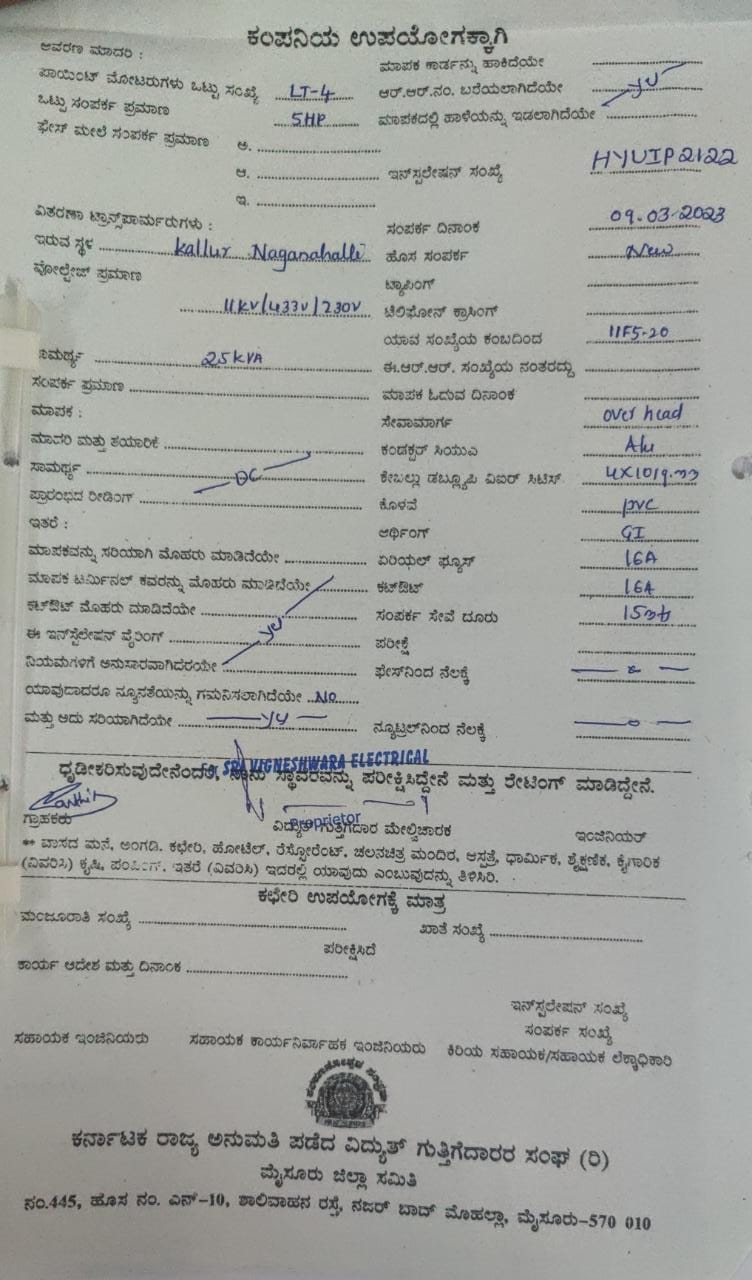 ಕಂಪನಿಯ ಉಪಯೋಗಕ್ಕಾಗಿ
ಆವರಣ ಮಾದರಿ :
ಮಾಪಕ ಕಾರ್ಡನ್ನು ಹಾಕಿದೆಯೇ
ಪಾಯಿಂಟ್ ಮೋಟರುಗಳು ಒಟ್ಟು ಸಂಖ್ಯೆ LT-4 ಆರ್.ಆರ್.ನಂ. ಬರೆಯಲಾಗಿದೆಯೇ yes
ಒಟ್ಟು ಸಂಪರ್ಕ ಪ್ರಮಾಣ 5HP ಮಾಪಕದಲ್ಲಿ ಹಾಳೆಯನ್ನು ಇಡಲಾಗಿದೆಯೇ
ಫೇಸ್ ಮೇಲೆ ಸಂಪರ್ಕ ಪ್ರಮಾಣ ಅ.
ಆ. ಇನ್‌ಸ್ಟಲೇಷನ್ ಸಂಖ್ಯೆ HYUIP2122
ಇ.
ವಿತರಣಾ ಟ್ರಾನ್ಸ್‌ಫಾರ್ಮರುಗಳು : ಸಂಪರ್ಕ ದಿನಾಂಕ 09.03-2023
ಇರುವ ಸ್ಥಳ Kallur Naganahalli ಹೊಸ ಸಂಪರ್ಕ New
ವೋಲ್ಟೇಜ್ ಪ್ರಮಾಣ ಟ್ಯಾಪಿಂಗ್
11KV/433V/230V ಟೆಲಿಫೋನ್ ಕ್ರಾಸಿಂಗ್
ಯಾವ ಸಂಖ್ಯೆಯ ಕಂಬದಿಂದ 11F5-20
ಸಾಮರ್ಥ್ಯ 25KVA ಈ.ಆರ್.ಆರ್. ಸಂಖ್ಯೆಯ ನಂತರದ್ದು
ಸಂಪರ್ಕ ಪ್ರಮಾಣ ಮಾಪಕ ಓದುವ ದಿನಾಂಕ
ಮಾಪಕ : ಸೇವಾಮಾರ್ಗ over head
ಮಾದರಿ ಮತ್ತು ತಯಾರಿಕೆ ಕಂಡಕ್ಟರ್ ಸಿಯುಎ Alu
ಸಾಮರ್ಥ್ಯ DC ಕೇಬಲ್ಲು ಡಬ್ಲ್ಯೂಪಿ ವಿಐಆರ್ ಸಿಟಿಸ್ 4X10/9.
ಪ್ರಾರಂಭದ ರೀಡಿಂಗ್ ಕೊಳವೆ pvc
ಇತರೆ : ಅರ್ಥಿಂಗ್ GI
ಮಾಪಕವನ್ನು ಸರಿಯಾಗಿ ಮೊಹರು ಮಾಡಿದೆಯೇ ಏರಿಯಲ್ ಫ್ಯೂಸ್ 16A
ಮಾಪಕ ಟರ್ಮಿನಲ್ ಕವರನ್ನು ಮೊಹರು ಮಾಡಿದೆಯೇ ಕಟ್‌ಔಟ್ 16A
ಕಟ್‌ಔಟ್ ಮೊಹರು ಮಾಡಿದೆಯೇ ಸಂಪರ್ಕ ಸೇವೆ ದೂರು 15
ಈ ಇನ್‌ಸ್ಟಲೇಷನ್ ವೈರಿಂಗ್ yes ಪರೀಕ್ಷೆ
ನಿಯಮಗಳಿಗೆ ಅನುಸಾರವಾಗಿದೆಯೇ ಫೇಸ್‌ನಿಂದ ನೆಲಕ್ಕೆ
ಯಾವುದಾದರೂ ನ್ಯೂನತೆಯನ್ನು ಗಮನಿಸಲಾಗಿದೆಯೇ No
ಮತ್ತು ಅದು ಸರಿಯಾಗಿದೆಯೇ yes ನ್ಯೂಟ್ರಲ್‌ನಿಂದ ನೆಲಕ್ಕೆ
SRI VIGNESHWARA ELECTRICAL
ಧೃಡೀಕರಿಸುವುದೇನೆಂದರೆ, ನಾನು ಸ್ಥಾವರವನ್ನು ಪರೀಕ್ಷಿಸಿದ್ದೇನೆ ಮತ್ತು ರೇಟಿಂಗ್ ಮಾಡಿದ್ದೇನೆ.
Proprietor
ಗ್ರಾಹಕರು ವಿದ್ಯುತ್ ಗುತ್ತಿಗೆದಾರ ಮೇಲ್ವಿಚಾರಕ ಇಂಜಿನಿಯರ್
** ವಾಸದ ಮನೆ, ಅಂಗಡಿ. ಕಛೇರಿ, ಹೋಟೆಲ್, ರೆಸ್ಟೋರೆಂಟ್, ಚಲನಚಿತ್ರ ಮಂದಿರ, ಆಸ್ಪತ್ರೆ, ಧಾರ್ಮಿಕ, ಶೈಕ್ಷಣಿಕ, ಕೈಗಾರಿಕ
(ವಿವರಿಸಿ) ಕೃಷಿ, ಪಂಪಿಂಗ್, ಇತರೆ (ವಿವರಿಸಿ) ಇದರಲ್ಲಿ ಯಾವುದು ಎಂಬುವುದನ್ನು ತಿಳಿಸಿರಿ.
ಕಛೇರಿ ಉಪಯೋಗಕ್ಕೆ ಮಾತ್ರ
ಮಂಜೂರಾತಿ ಸಂಖ್ಯೆ ಖಾತೆ ಸಂಖ್ಯೆ
ಪರೀಕ್ಷಿಸಿದೆ
ಕಾರ್ಯ ಆದೇಶ ಮತ್ತು ದಿನಾಂಕ
ಇನ್‌ಸ್ಟಲೇಷನ್ ಸಂಖ್ಯೆ
ಸಂಪರ್ಕ ಸಂಖ್ಯೆ
ಸಹಾಯಕ ಇಂಜಿನಿಯರು ಸಹಾಯಕ ಕಾರ್ಯನಿರ್ವಾಹಕ ಇಂಜಿನಿಯರು ಕಿರಿಯ ಸಹಾಯಕ/ಸಹಾಯಕ ಲೆಕ್ಕಾಧಿಕಾರಿ
ಕರ್ನಾಟಕ ರಾಜ್ಯ ಅನುಮತಿ ಪಡೆದ ವಿದ್ಯುತ್ ಗುತ್ತಿಗೆದಾರರ ಸಂಘ (ರಿ)
ಮೈಸೂರು ಜಿಲ್ಲಾ ಸಮಿತಿ
ನಂ.445, ಹೊಸ ನಂ. ಎನ್-10, ಶಾಲಿವಾಹನ ರಸ್ತೆ, ನಜರ್ ಬಾದ್ ಮೊಹಲ್ಲಾ, ಮೈಸೂರು-570 010